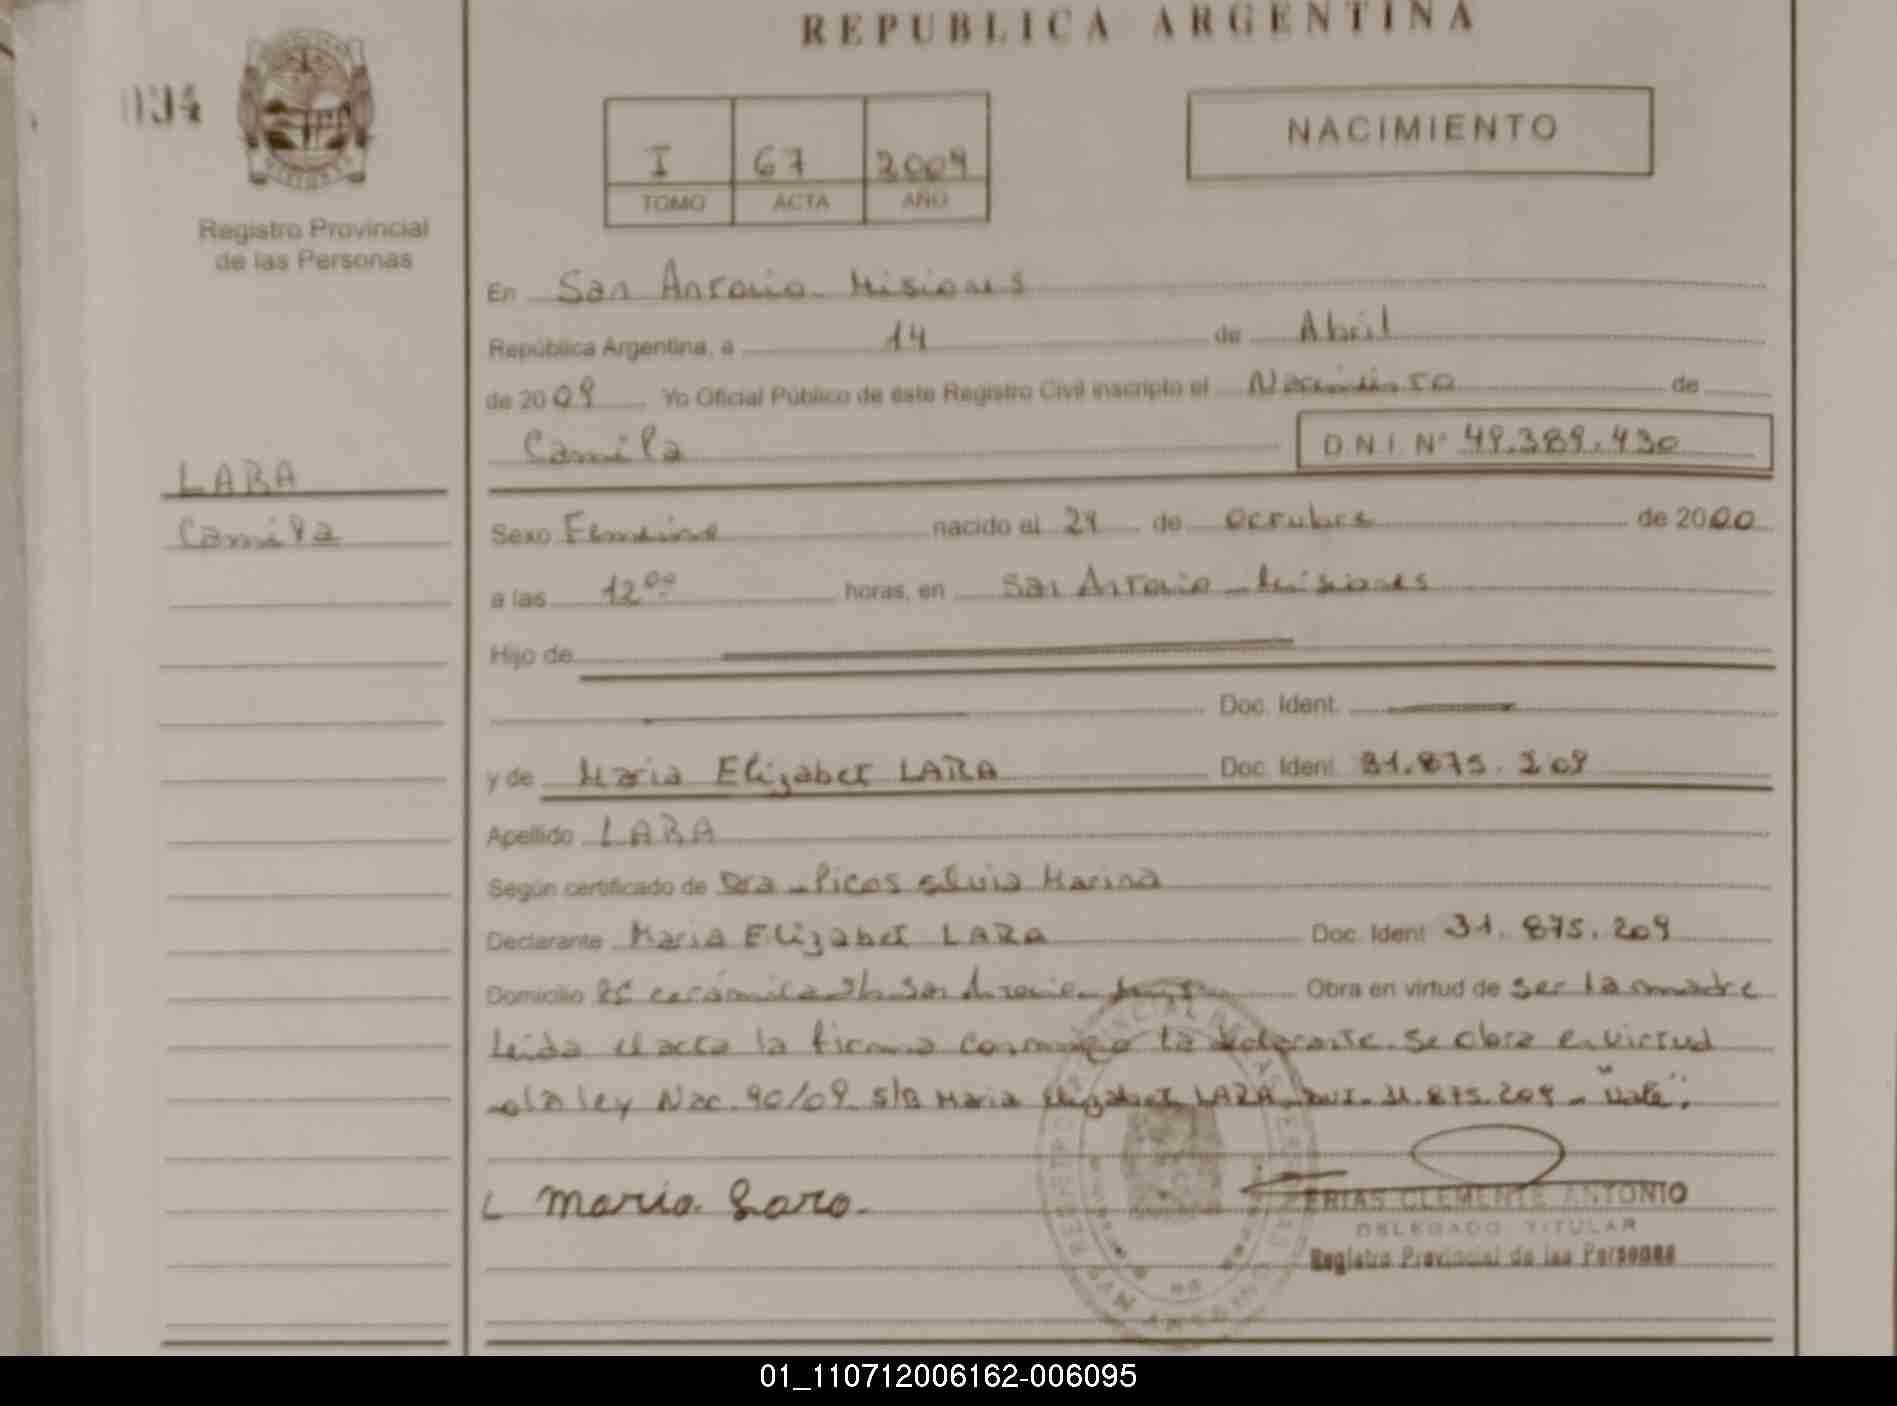 REPUBLICA ARGENTINA
134
I 67 2009
TOMO ACTA AÑO
NACIMIENTO
Registro Provincial
de las Personas
En San Antonio Misiones
República Argentina, a 14 de Abril
de 2009 Yo Oficial Público de este Registro Civil inscripto el Nacimiento de
Camila D.N.I. Nº 49.389.430
LARA
Camila
Sexo Femenino nacido el 29 de Octubre de 2000
a las 12 00 horas, en San Antonio - Misiones
Hijo de
Doc. Ident.
y de Maria Elizabet LARA Doc. Ident. 31.875.209
Apellido LARA
Según certificado de Dra - Picos Silvia Marina
Declarante Maria Elizabet LARA Doc. Ident 31.875.209
Domicilio cerámica San Antonio Obra en virtud de ser la madre
Leida el acta la firma conmigo la declarante. Se obra en virtud
a la ley Nac. 90/09 S/B Maria Elizabet LARA DNI. 31.875.209 - "Vale".
Maria Lara.
FRIAS CLEMENTE ANTONIO
DELEGADO TITULAR
Registro Provincial de las Personas
01_110712006162-006095